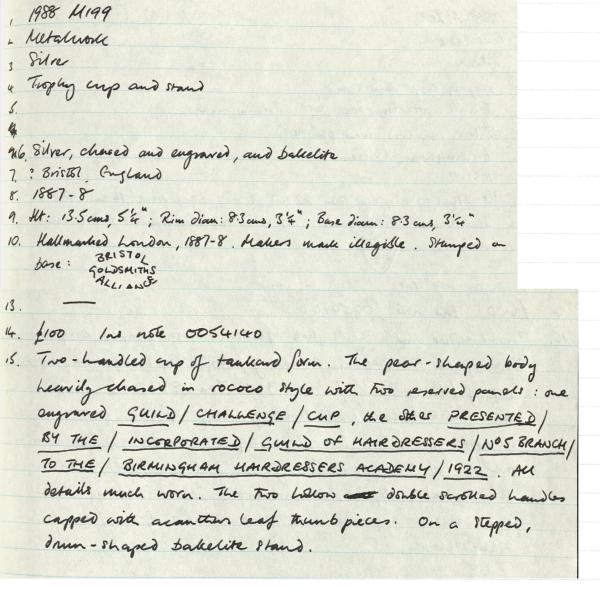 1. 1988 M199
2. Metalwork
3 Silver
4 Trophy cup and stand
5.
6. Silver, chased and engraved, and bakelite
7. ? Bristol, England
8. 1887-8
9. Ht: 13.5cms, 5¼"; Rim diam: 8.3cms, 3¼"; Base diam: 8.3cms, 3¼"
10. Hallmarked London, 1887-8. Makers mark illegible. Stamped on
base: BRISTOL
GOLDSMITHS
ALLIANCE
13. —
14. £100 Ins note 0054140
15. Two-handled cup of tankard form. The pear-shaped body
heavily chased in rococo style with two reserved panels: one
engraved GUILD/CHALLENGE/CUP, the other PRESENTED/
BY THE/INCORPORATED/GUILD OF HAIRDRESSERS/No5 BRANCH/
TO THE/BIRMINGHAM HAIRDRESSERS ACADEMY/1922. All
details much worn. The two hollow double scrolled handles
capped with acanthus leaf thumbpieces. On a stepped,
drum-shaped bakelite stand.